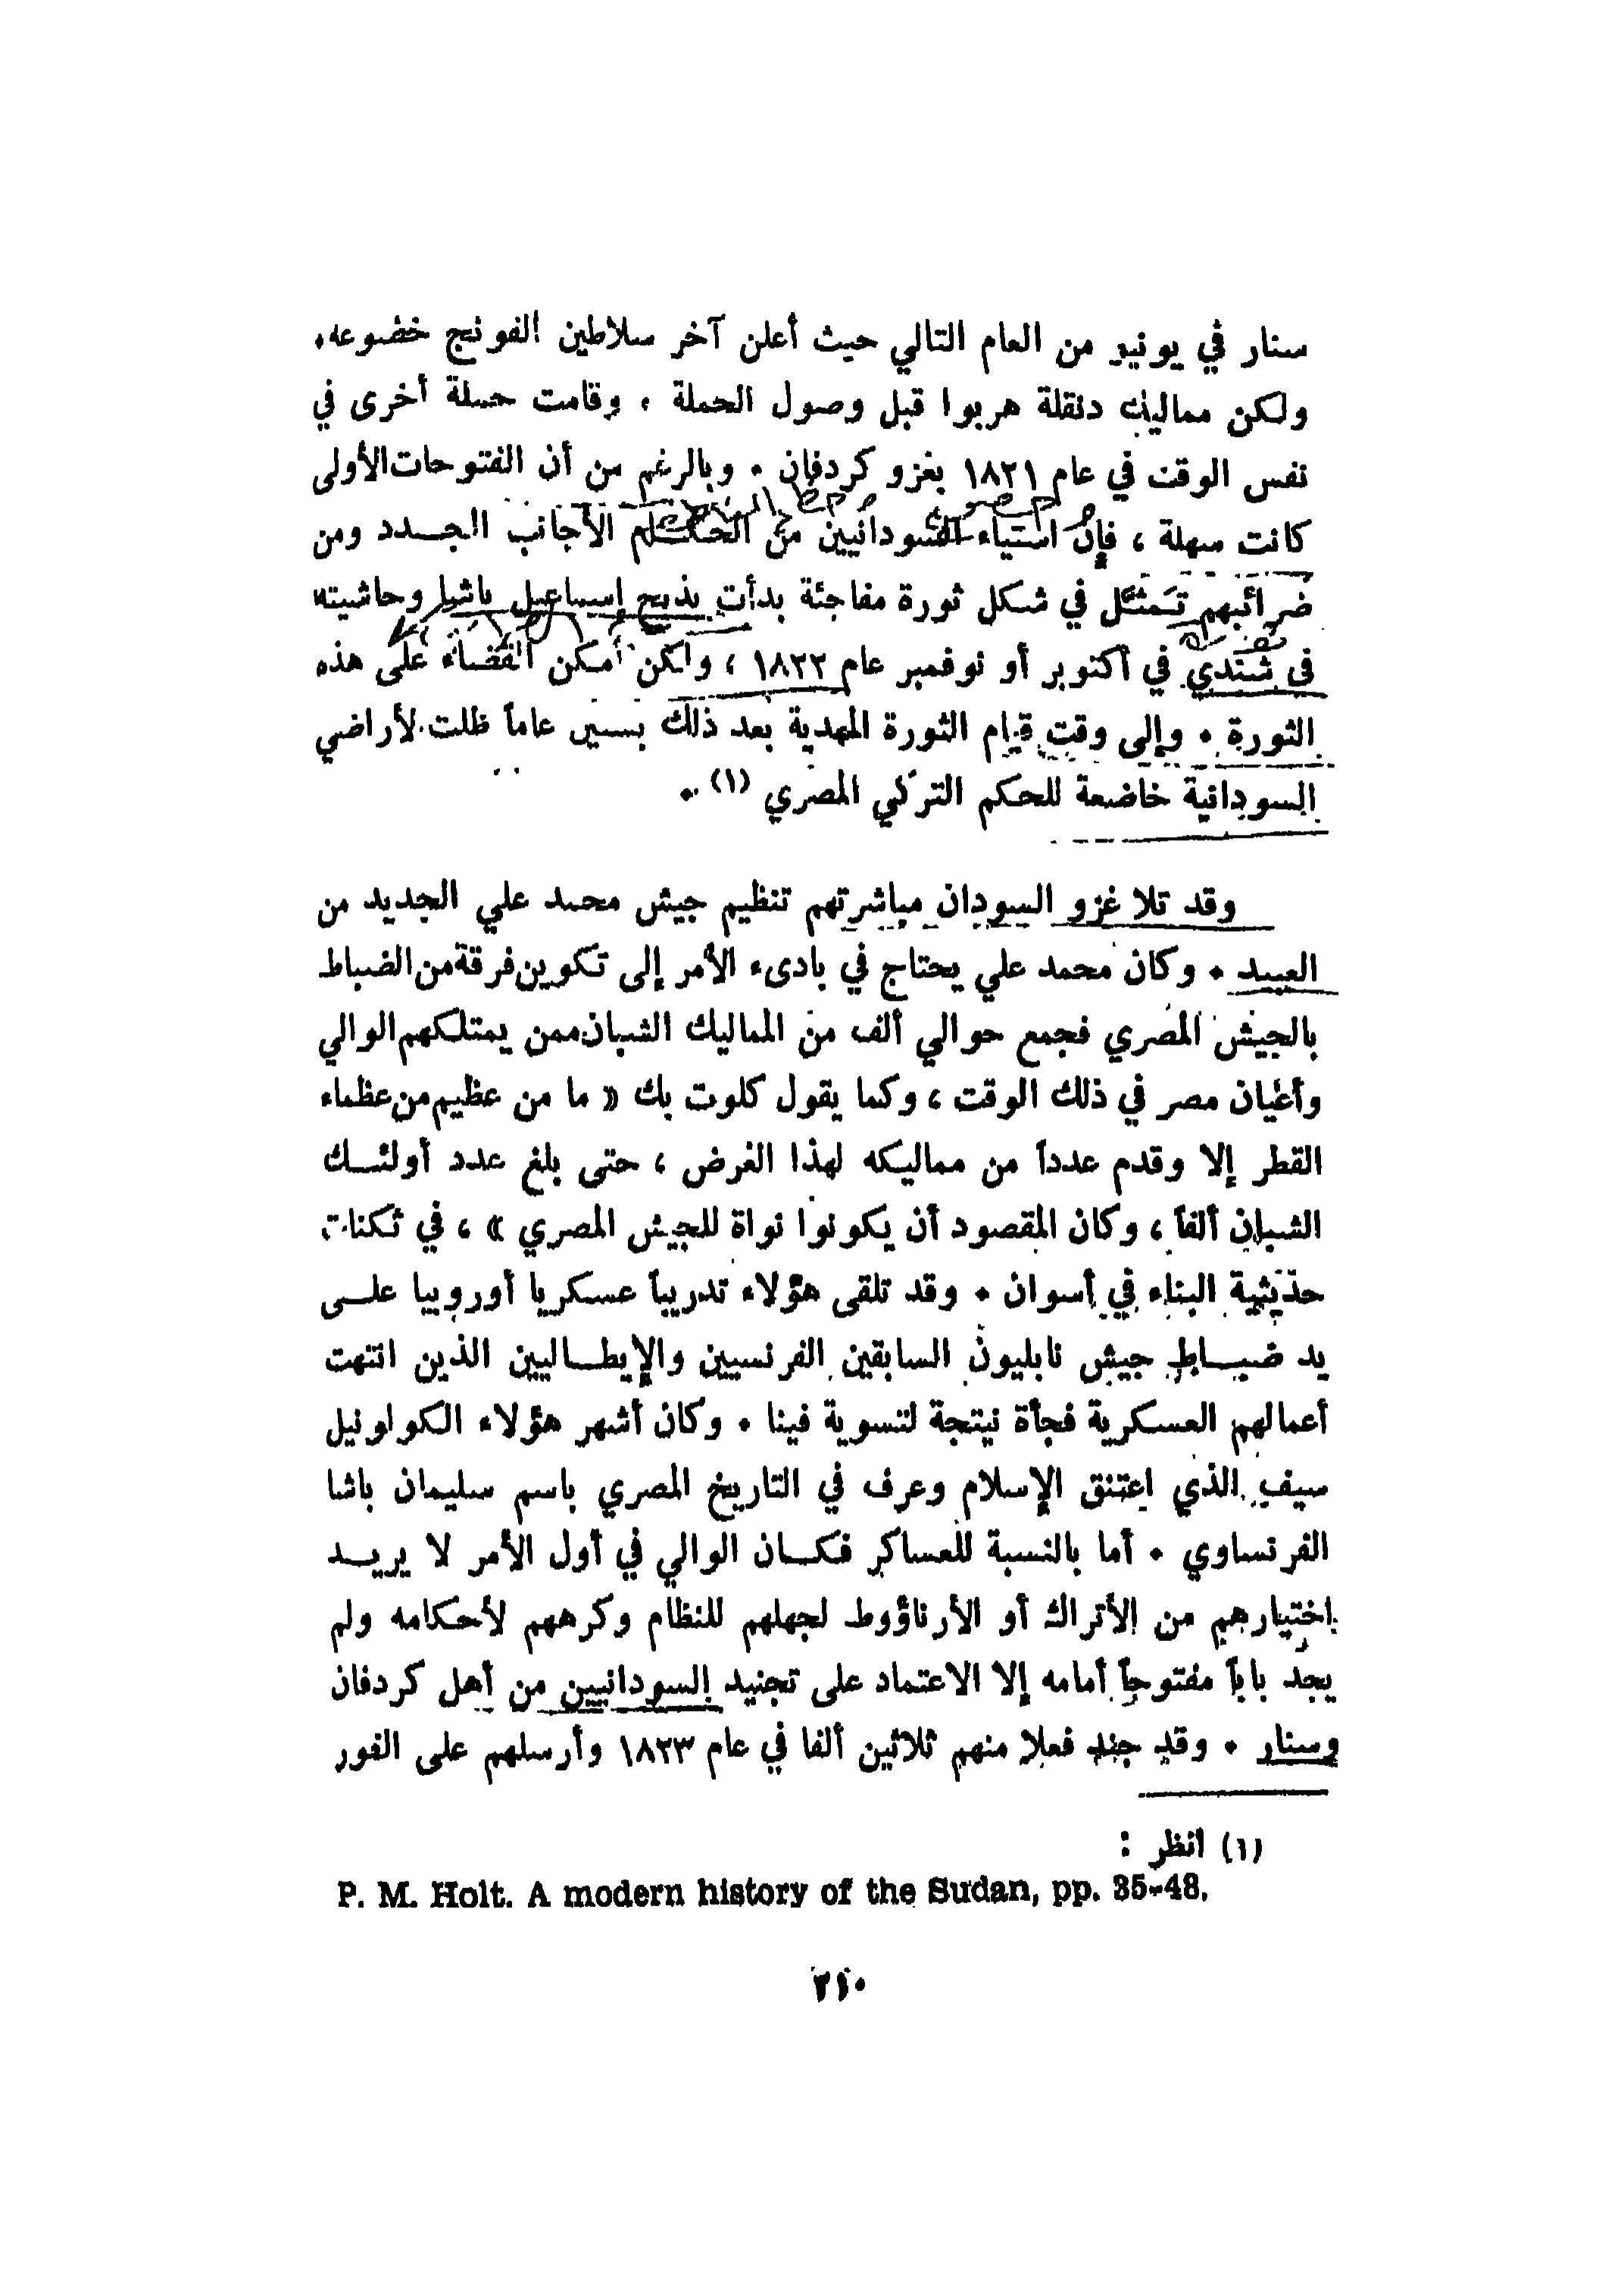 سنار في يونيو من العام التالي حيث أعلن آخر سلاطين الفونج خضوعه.
ولكن مماليك دنقلة هربوا قبل وصول الحملة . وقامت حملة أخرى في
نفس الوقت في عام ١٨٢١ بغزو كردفان . وبالرغم من أن الفتوحات الأولى
كانت سهلة ، فإن استياء السودانيين من الحكام الأجانب الجدد ومن
ضرائبهم تمثل في شكل ثورة مفاجئة بدأت بذبح إسماعيل باشا وحاشيته
في شندي في أكتوبر أو نوفمبر عام ١٨٢٢ ، ولكن أمكن القضاء على هذه
الثورة . وإلى وقت قيام الثورة المهدية بعد ذلك بستين عاماً ظلت لأراضي
السودانية خاضعة للحكم التركي المصري (١) .
وقد تلا غزو السودان مباشرتهم تنظيم جيش محمد علي الجديد من
العبيد . وكان محمد علي يحتاج في بادىء الأمر إلى تكوين فرقة من الضباط
بالجيش المصري فجمع حوالي ألف من المماليك الشبان ممن يمتلكهم الوالي
وأعيان مصر في ذلك الوقت ، وكما يقول كلوت بك « ما من عظيم من عظماء
القطر إلا وقدم عدداً من مماليكه لهذا الغرض ، حتى بلغ عدد أولئك
الشبان ألفاً ، وكان المقصود أن يكونوا نواة للجيش المصري » ، في ثكنات
حديثية البناء في أسوان . وقد تلقى هؤلاء تدريباً عسكريا أوروبيا على
يد ضباط جيش نابليون السابقين الفرنسيين والإيطاليين الذين انتهت
أعمالهم العسكرية فجأة نيتجة لتسوية فينا . وكان أشهر هؤلاء الكولونيل
سيف الذي اعتنق الإسلام وعرف في التاريخ المصري باسم سليمان باشا
الفرنساوي . أما بالنسبة للعساكر فكان الوالي في أول الأمر لا يريد
اختيارهم من الأتراك أو الأرناؤوط لجهلهم للنظام وكرههم لأحكامه ولم
يجد باباً مفتوحاً أمامه إلا الاعتماد على تجنيد السودانيين من أهل كردفان
وسنار . وقد جند فعلا منهم ثلاثين ألفا في عام ١٨٢٣ وأرسلهم على الفور
(١) انظر :
P. M. Holt. A modern history of the Sudan, pp. 35-48.
٢١٠